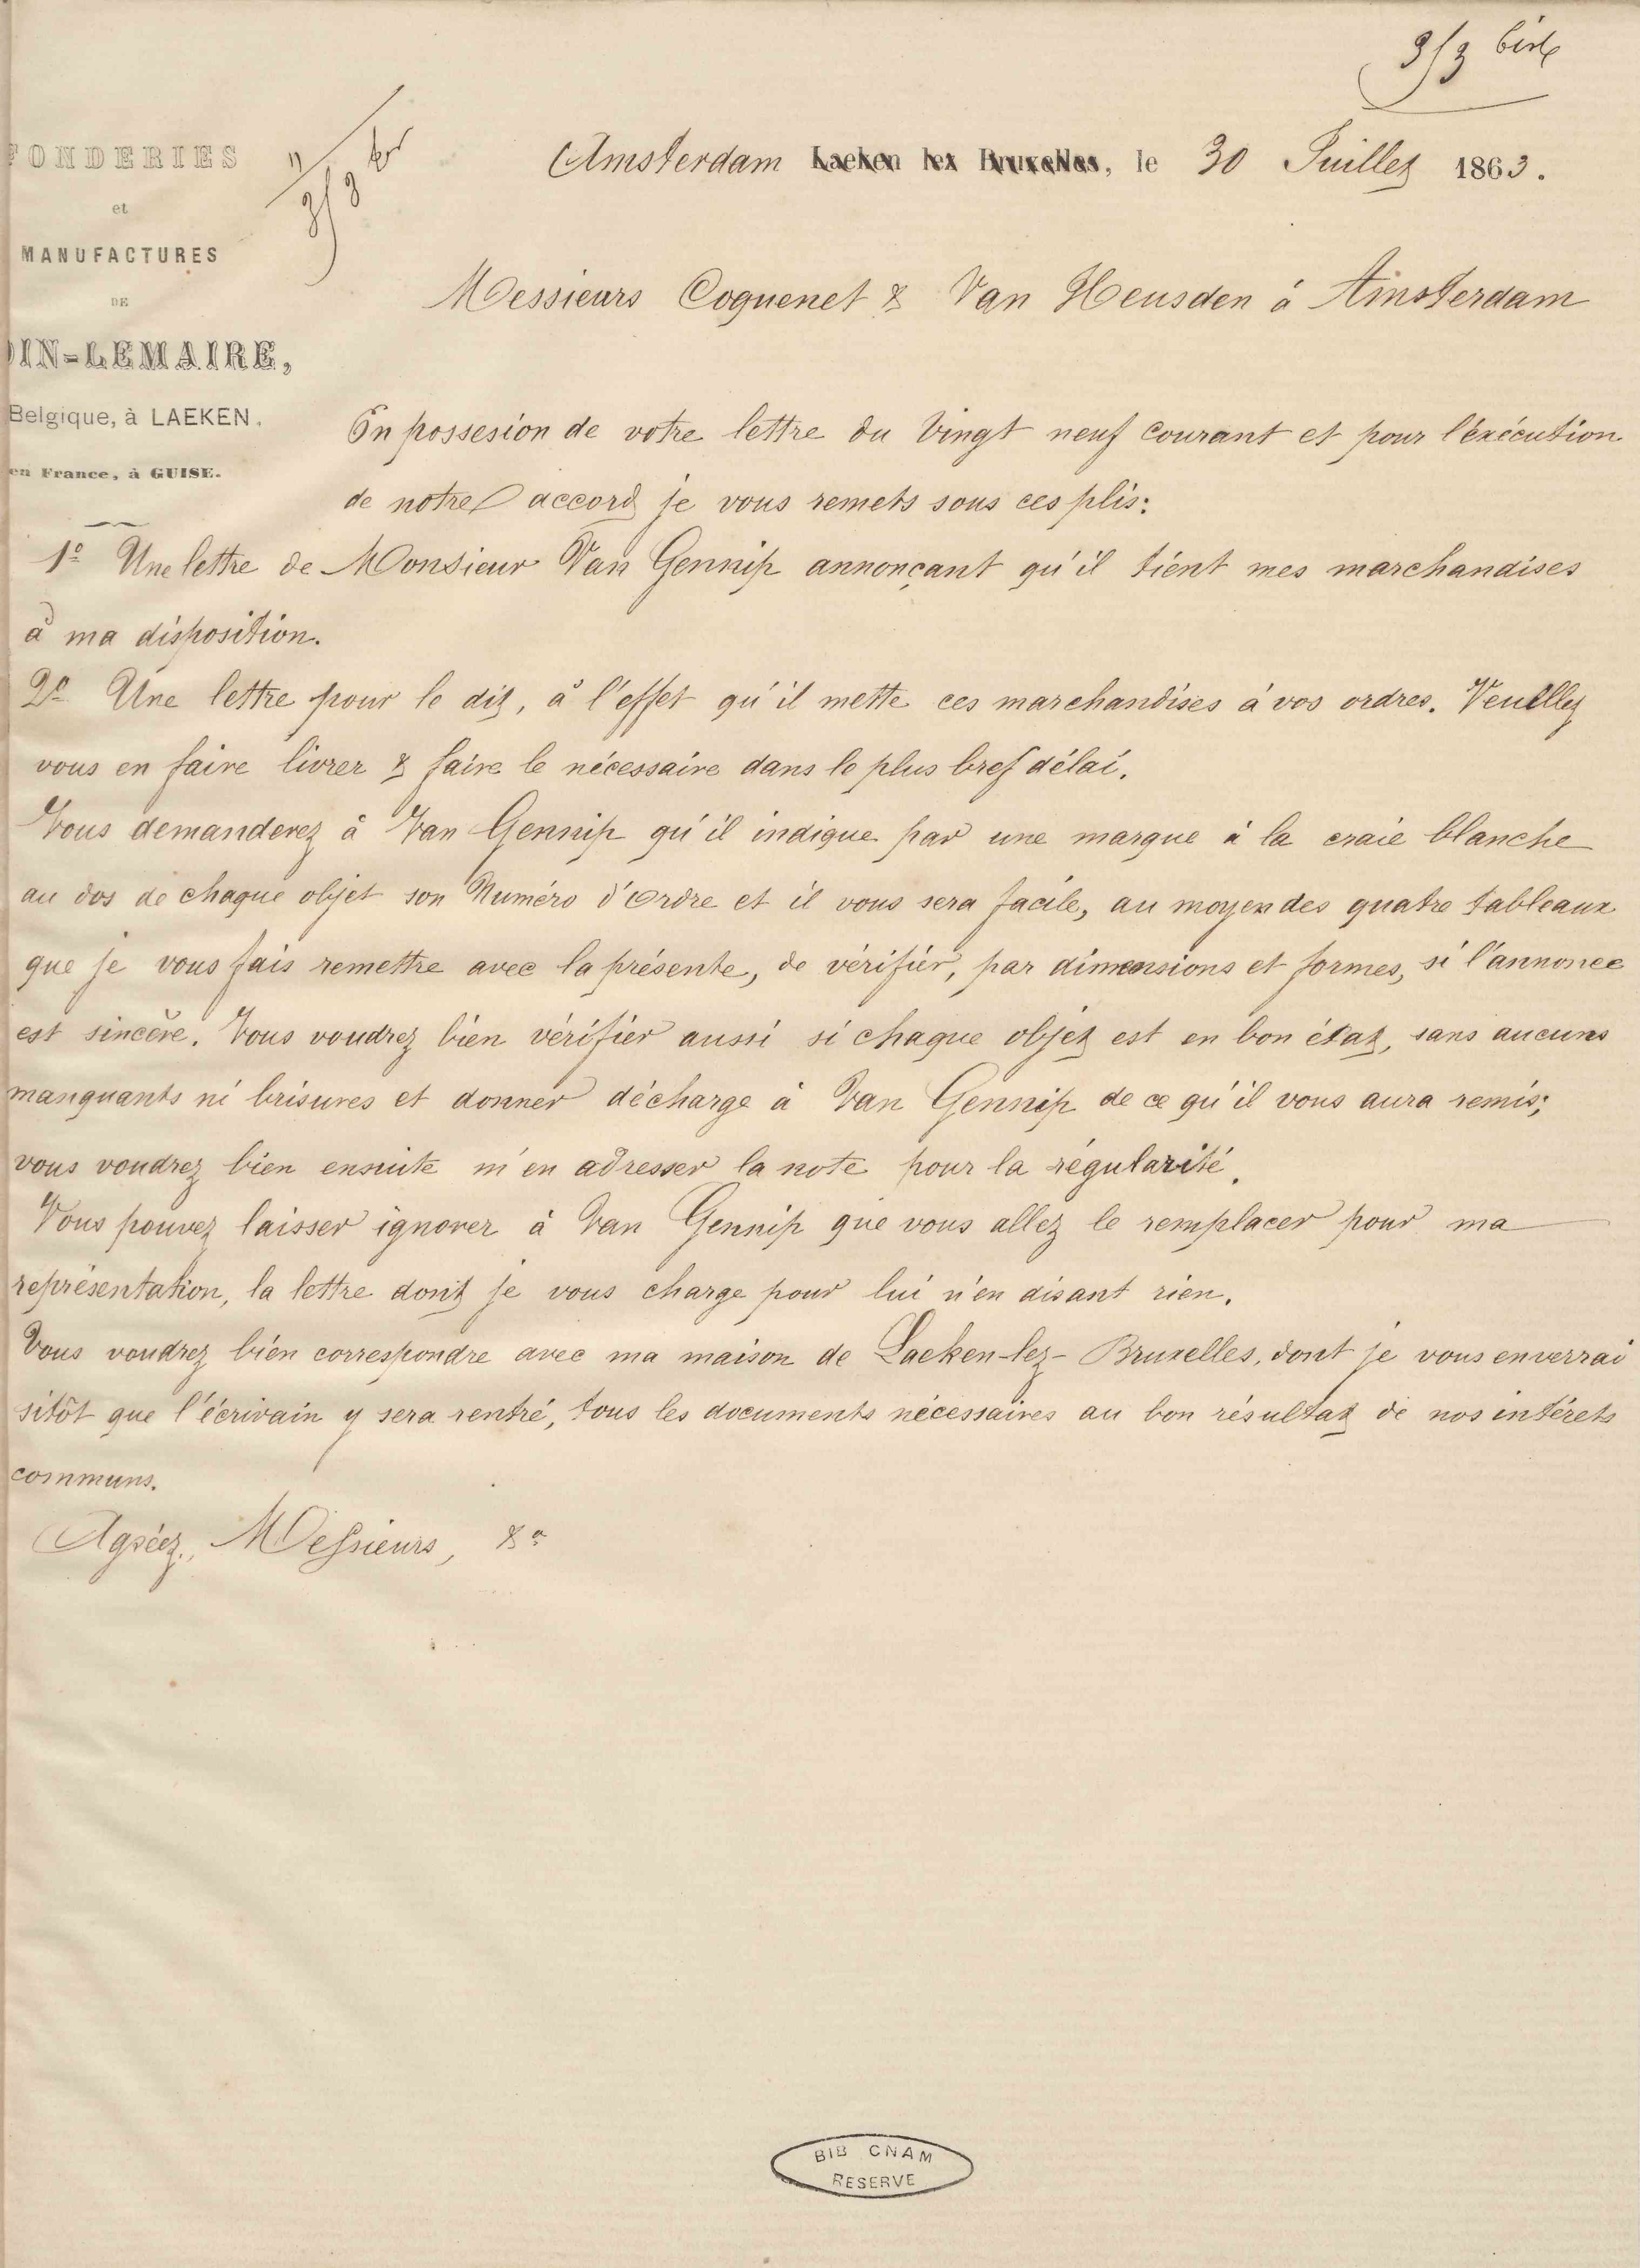 3/3 bis
FONDERIES
et
MANUFACTURES
DE
DIN-LEMAIRE,
Belgique, à LAEKEN.
en France, à GUISE.
Amsterdam Laeken lez Bruxelles, le 30 Juillet 1863.
Messieurs Coquenet & Van Heusden à Amsterdam
En possesion de votre lettre du vingt neuf courant et pour l'éxécution
de notre accord je vous remets sous ces plis:
1º Une lettre de Monsieur Van Gennip annonçant qu'il tient mes marchandises
à ma disposition.
2º Une lettre pour le dit, à l'effet qu'il mette ces marchandises à vos ordres. Veuillez
vous en faire livrer & faire le nécessaire dans le plus bref délai.
Vous demanderez à Van Gennip qu'il indique par une marque à la craie blanche
au dos de chaque objet son Numéro d'Ordre et il vous sera facile, au moyen des quatre tableaux
que je vous fais remettre avec la présente, de vérifier, par dimensions et formes, si l'annonce
est sincère. Vous voudrez bien vérifier aussi si chaque objet est en bon état, sans aucuns
manquants ni brisures et donner décharge à Van Gennip de ce qu'il vous aura remis;
vous voudrez bien ensuite m'en adresser la note pour la régularité.
Vous pouvez laisser ignorer à Van Gennip que vous allez le remplacer pour ma
représentation, la lettre dont je vous charge pour lui n'en disant rien.
Vous voudrez bien correspondre avec ma maison de Laeken-lez-Bruxelles, dont je vous enverrai
sitôt que l'écrivain y sera rentré, tous les documents nécessaires au bon résultat de nos intérets
communs.
Agréez, Messieurs, &a
BIB CNAM
RESERVE